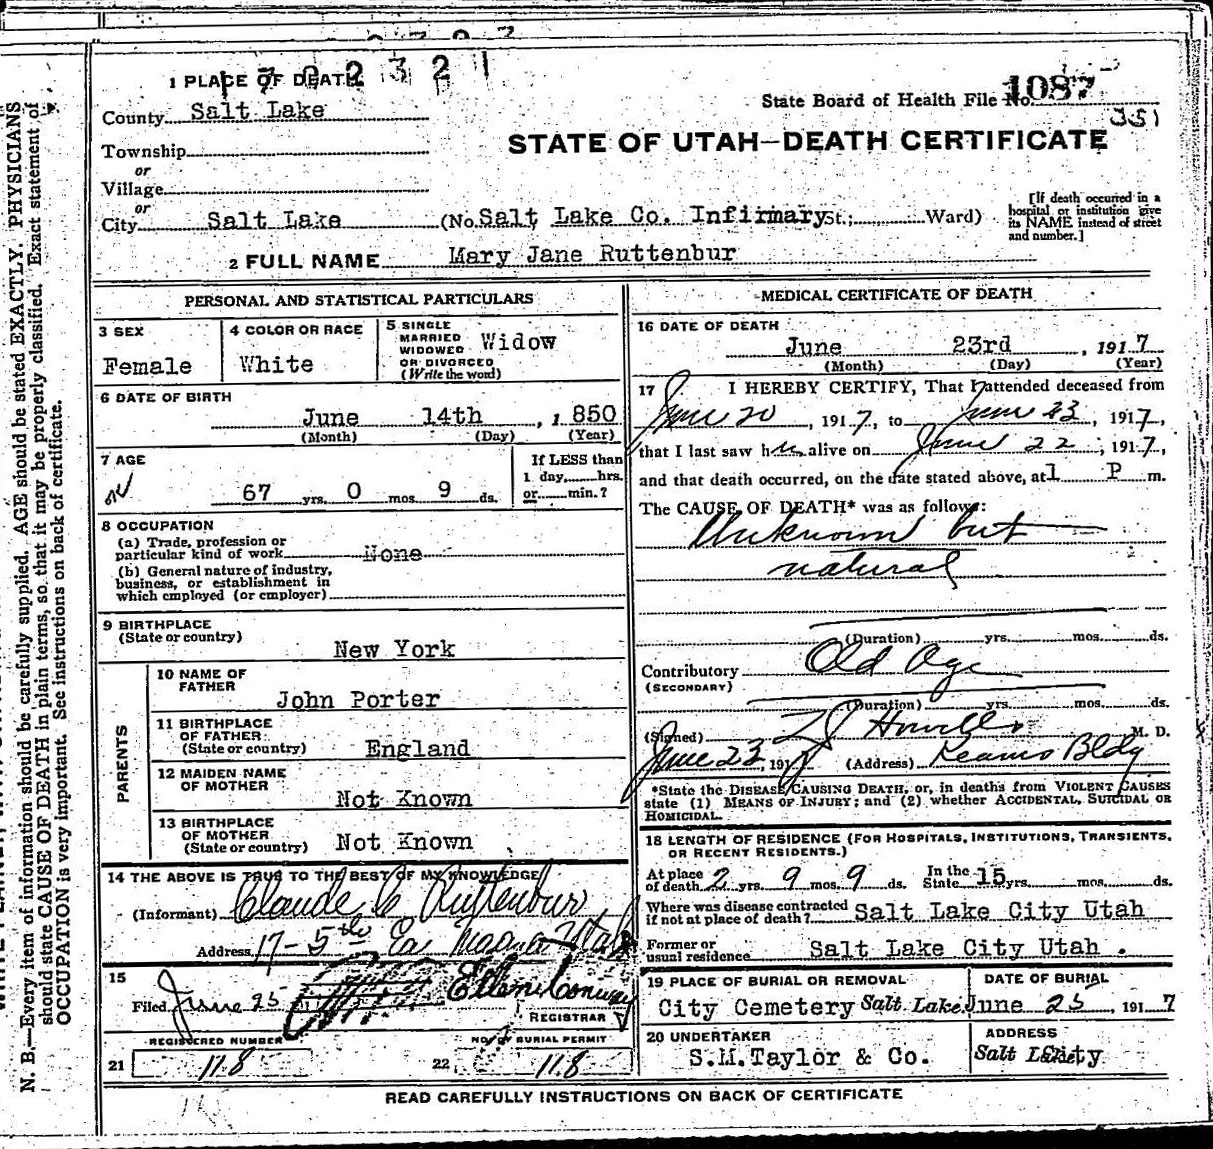 1 PLACE OF DEATH
County Salt Lake
Township
or
Village
or
City Salt Lake (No. Salt Lake Co. Infirmary St.; Ward)
[If death occurred in a
hospital or institution give
its NAME instead of street
and number.]
State Board of Health File No. 1087
351
STATE OF UTAH—DEATH CERTIFICATE
2 FULL NAME Mary Jane Ruttenbur
PERSONAL AND STATISTICAL PARTICULARS
3 SEX
Female
4 COLOR OR RACE
White
5 SINGLE
MARRIED
WIDOWED
OR DIVORCED
(Write the word)
Widow
6 DATE OF BIRTH
June 14th , 1850
(Month) (Day) (Year)
7 AGE
67 yrs. 0 mos. 9 ds.
If LESS than
1 day, hrs.
or min.?
8 OCCUPATION
(a) Trade, profession or
particular kind of work None
(b) General nature of industry,
business, or establishment in
which employed (or employer)
9 BIRTHPLACE
(State or country)
New York
PARENTS
10 NAME OF
FATHER
John Porter
11 BIRTHPLACE
OF FATHER
(State or country) England
12 MAIDEN NAME
OF MOTHER
Not Known
13 BIRTHPLACE
OF MOTHER
(State or country) Not Known
14 THE ABOVE IS TRUE TO THE BEST OF MY KNOWLEDGE
(Informant) Claude C Ruttenbur
Address 17-5th Ea
15
Filed June 25
REGISTRAR
REGISTERED NUMBER
21 118
NO. OF BURIAL PERMIT
22 118
MEDICAL CERTIFICATE OF DEATH
16 DATE OF DEATH
June 23rd , 1917
(Month) (Day) (Year)
17 I HEREBY CERTIFY, That I attended deceased from
June 20 , 1917, to June 23, 1917,
that I last saw her alive on June 22, 1917,
and that death occurred, on the date stated above, at 1 P m.
The CAUSE OF DEATH* was as follows:
Unknown but
natural
(Duration) yrs. mos. ds.
Contributory Old Age
(SECONDARY)
(Duration) yrs. mos. ds.
(Signed) M. D.
June 23, 1917 (Address) Kearns Bldg
*State the DISEASE CAUSING DEATH, or, in deaths from VIOLENT CAUSES
state (1) MEANS OF INJURY; and (2) whether ACCIDENTAL, SUICIDAL OR
HOMICIDAL.
18 LENGTH OF RESIDENCE (FOR HOSPITALS, INSTITUTIONS, TRANSIENTS,
OR RECENT RESIDENTS.)
At place
of death 2 yrs. 9 mos. 9 ds. In the
State 15 yrs. mos. ds.
Where was disease contracted
if not at place of death? Salt Lake City Utah
Former or
usual residence Salt Lake City Utah .
19 PLACE OF BURIAL OR REMOVAL
City Cemetery Salt Lake
DATE OF BURIAL
June 25 , 1917
20 UNDERTAKER
S.M.Taylor & Co.
ADDRESS
Salt Lake City
READ CAREFULLY INSTRUCTIONS ON BACK OF CERTIFICATE
N. B.—Every item of information should be carefully supplied. AGE should be stated EXACTLY. PHYSICIANS
should state CAUSE OF DEATH in plain terms, so that it may be properly classified. Exact statement of
OCCUPATION is very important. See instructions on back of certificate.